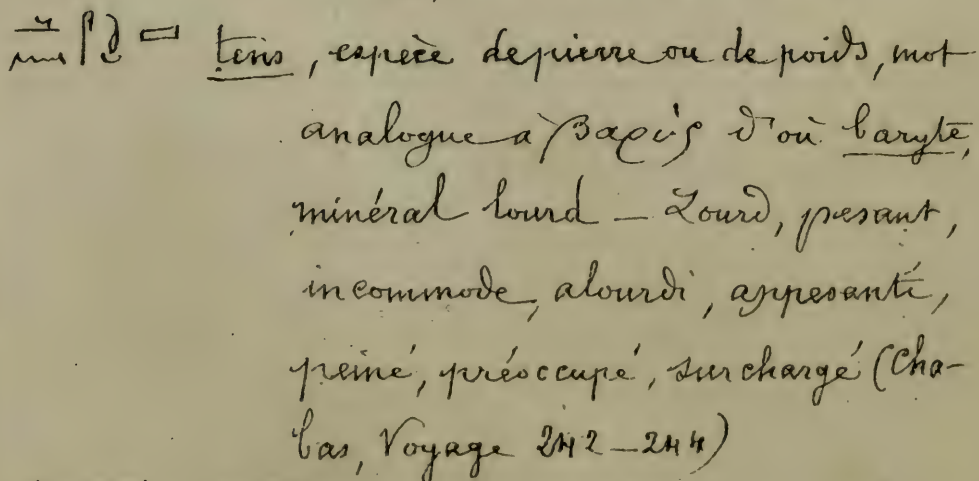 tens, espèce de pierre ou de poids, mot
analogue à βαρύς d'où baryte,
minéral lourd — Lourd, pesant,
incommode, alourdi, appesanti,
peiné, préoccupé, surchargé (Cha-
bas, Voyage 242-244)